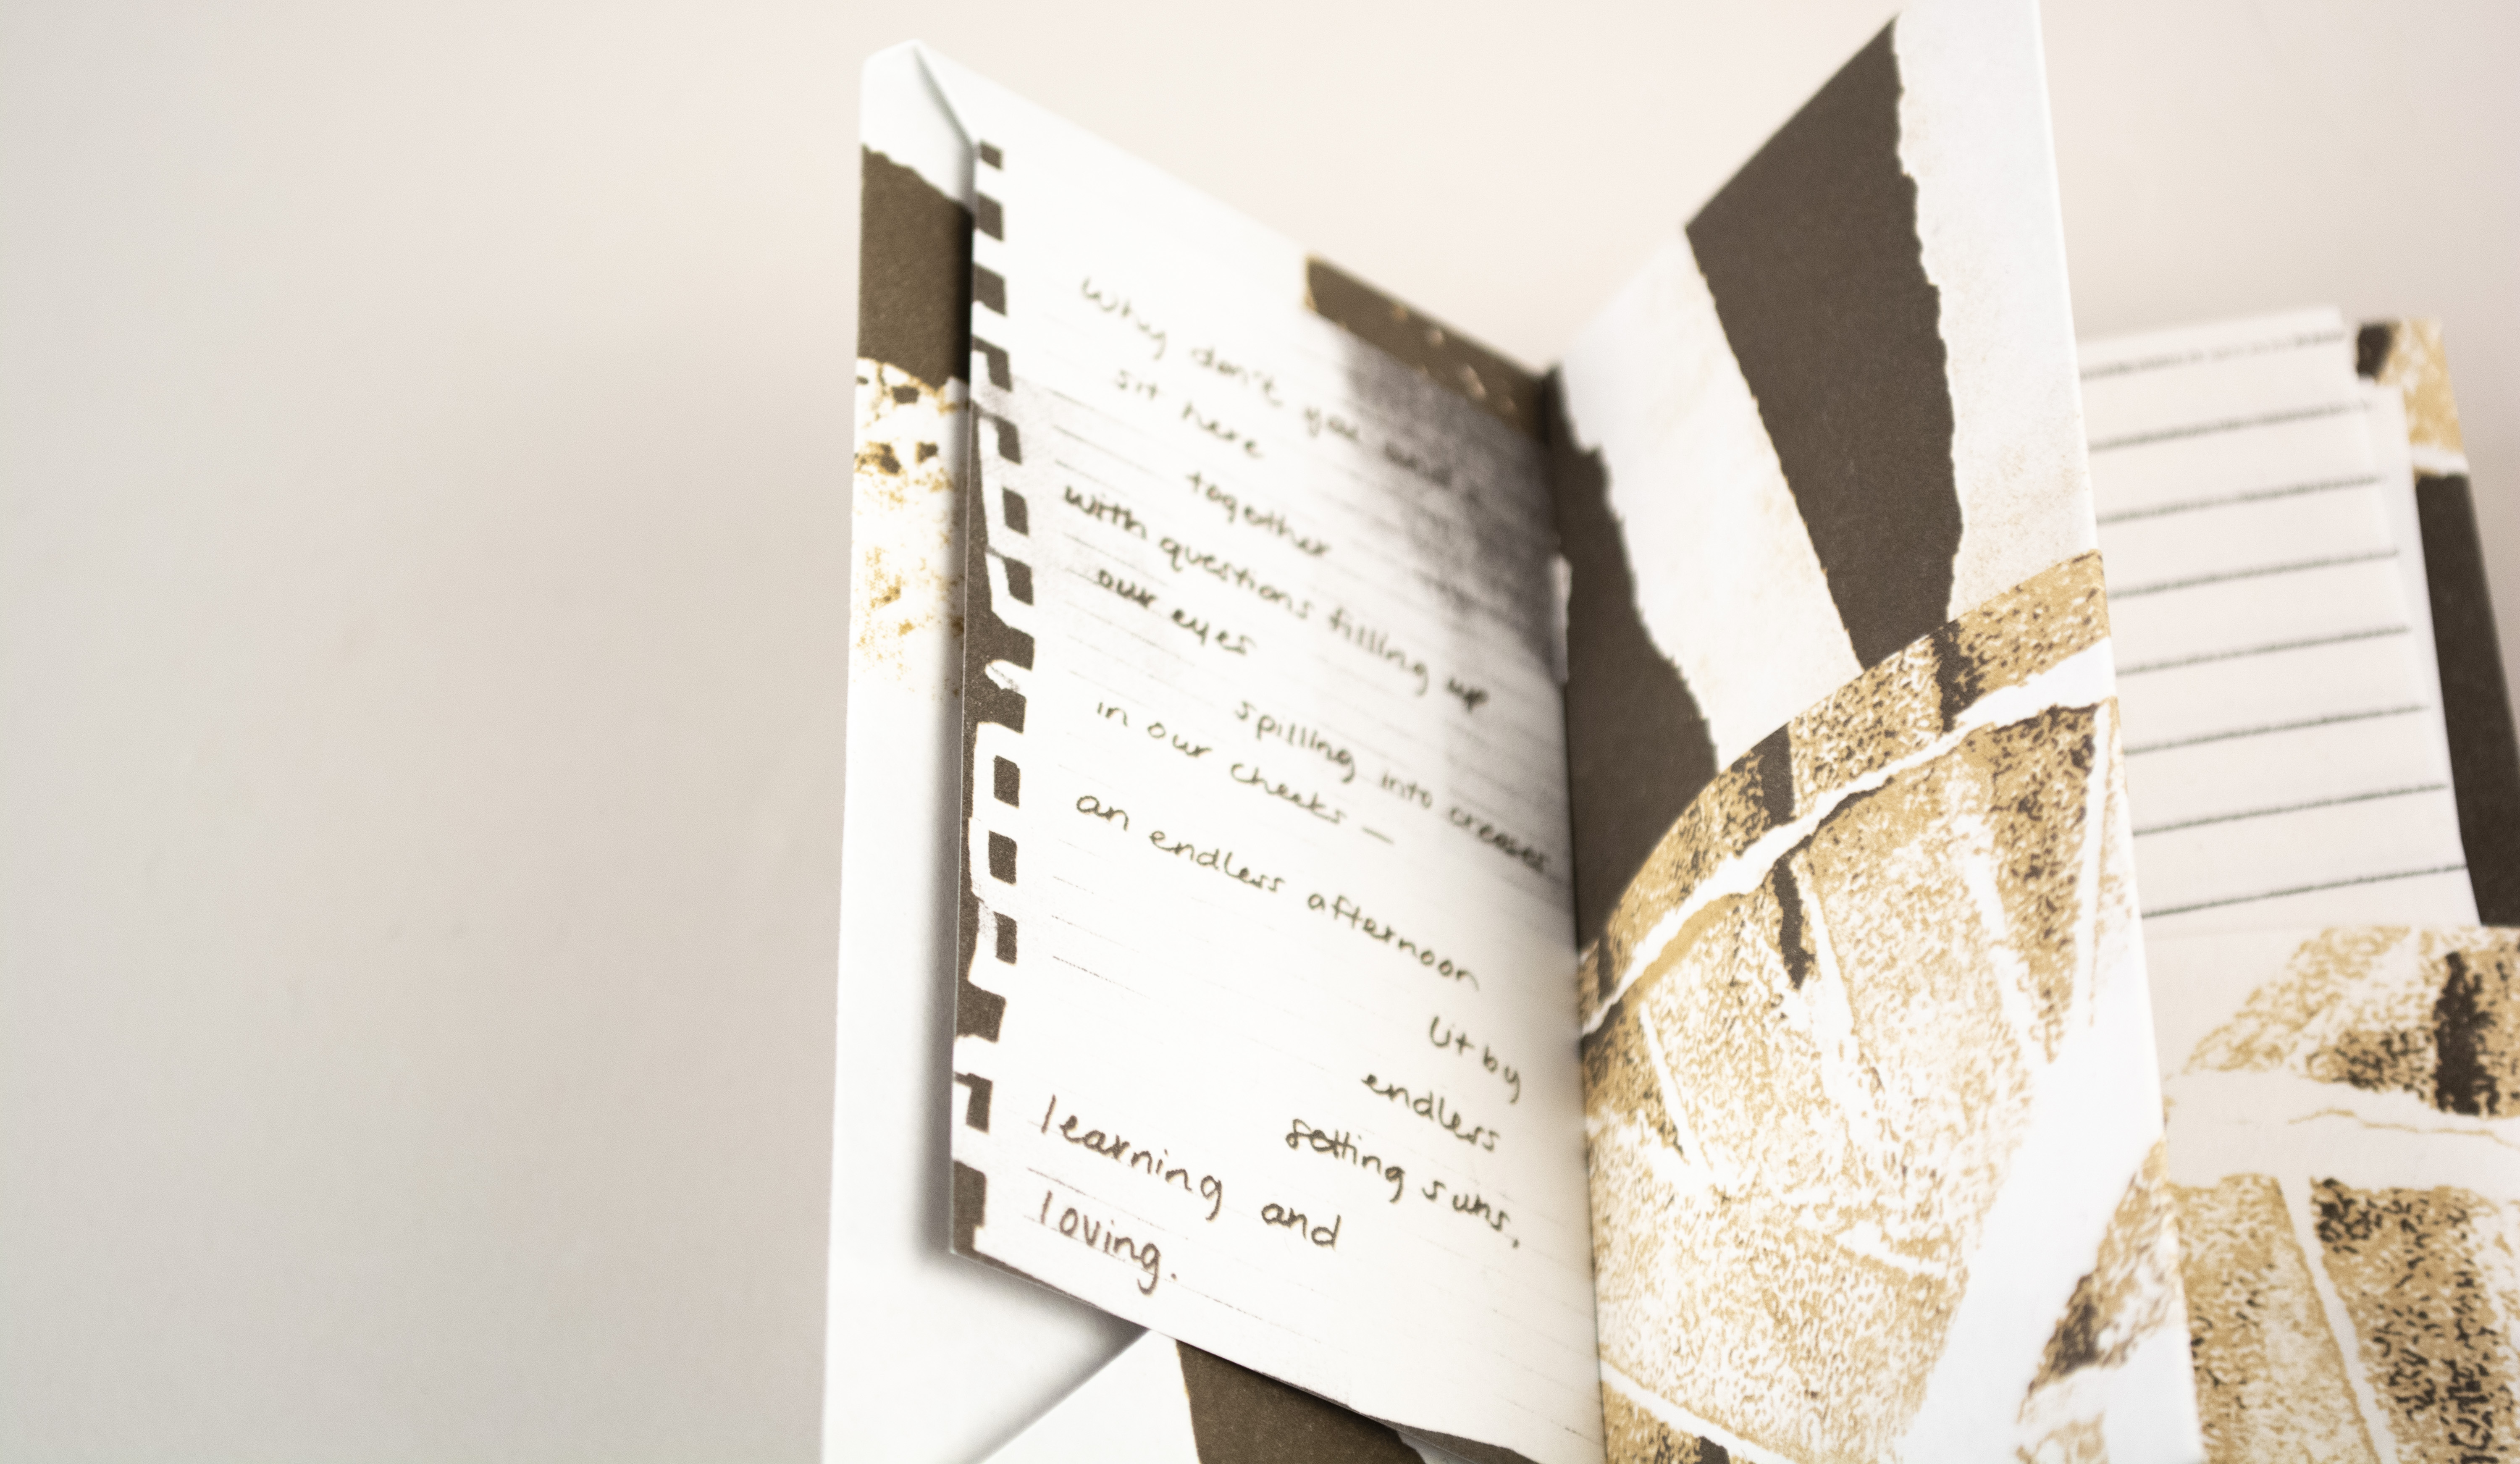 Why don't you and I
sit here
together
with questions filling up
our eyes
spilling into creases
in our cheeks —
an endless afternoon
lit by
endless
setting suns,
learning and
loving.